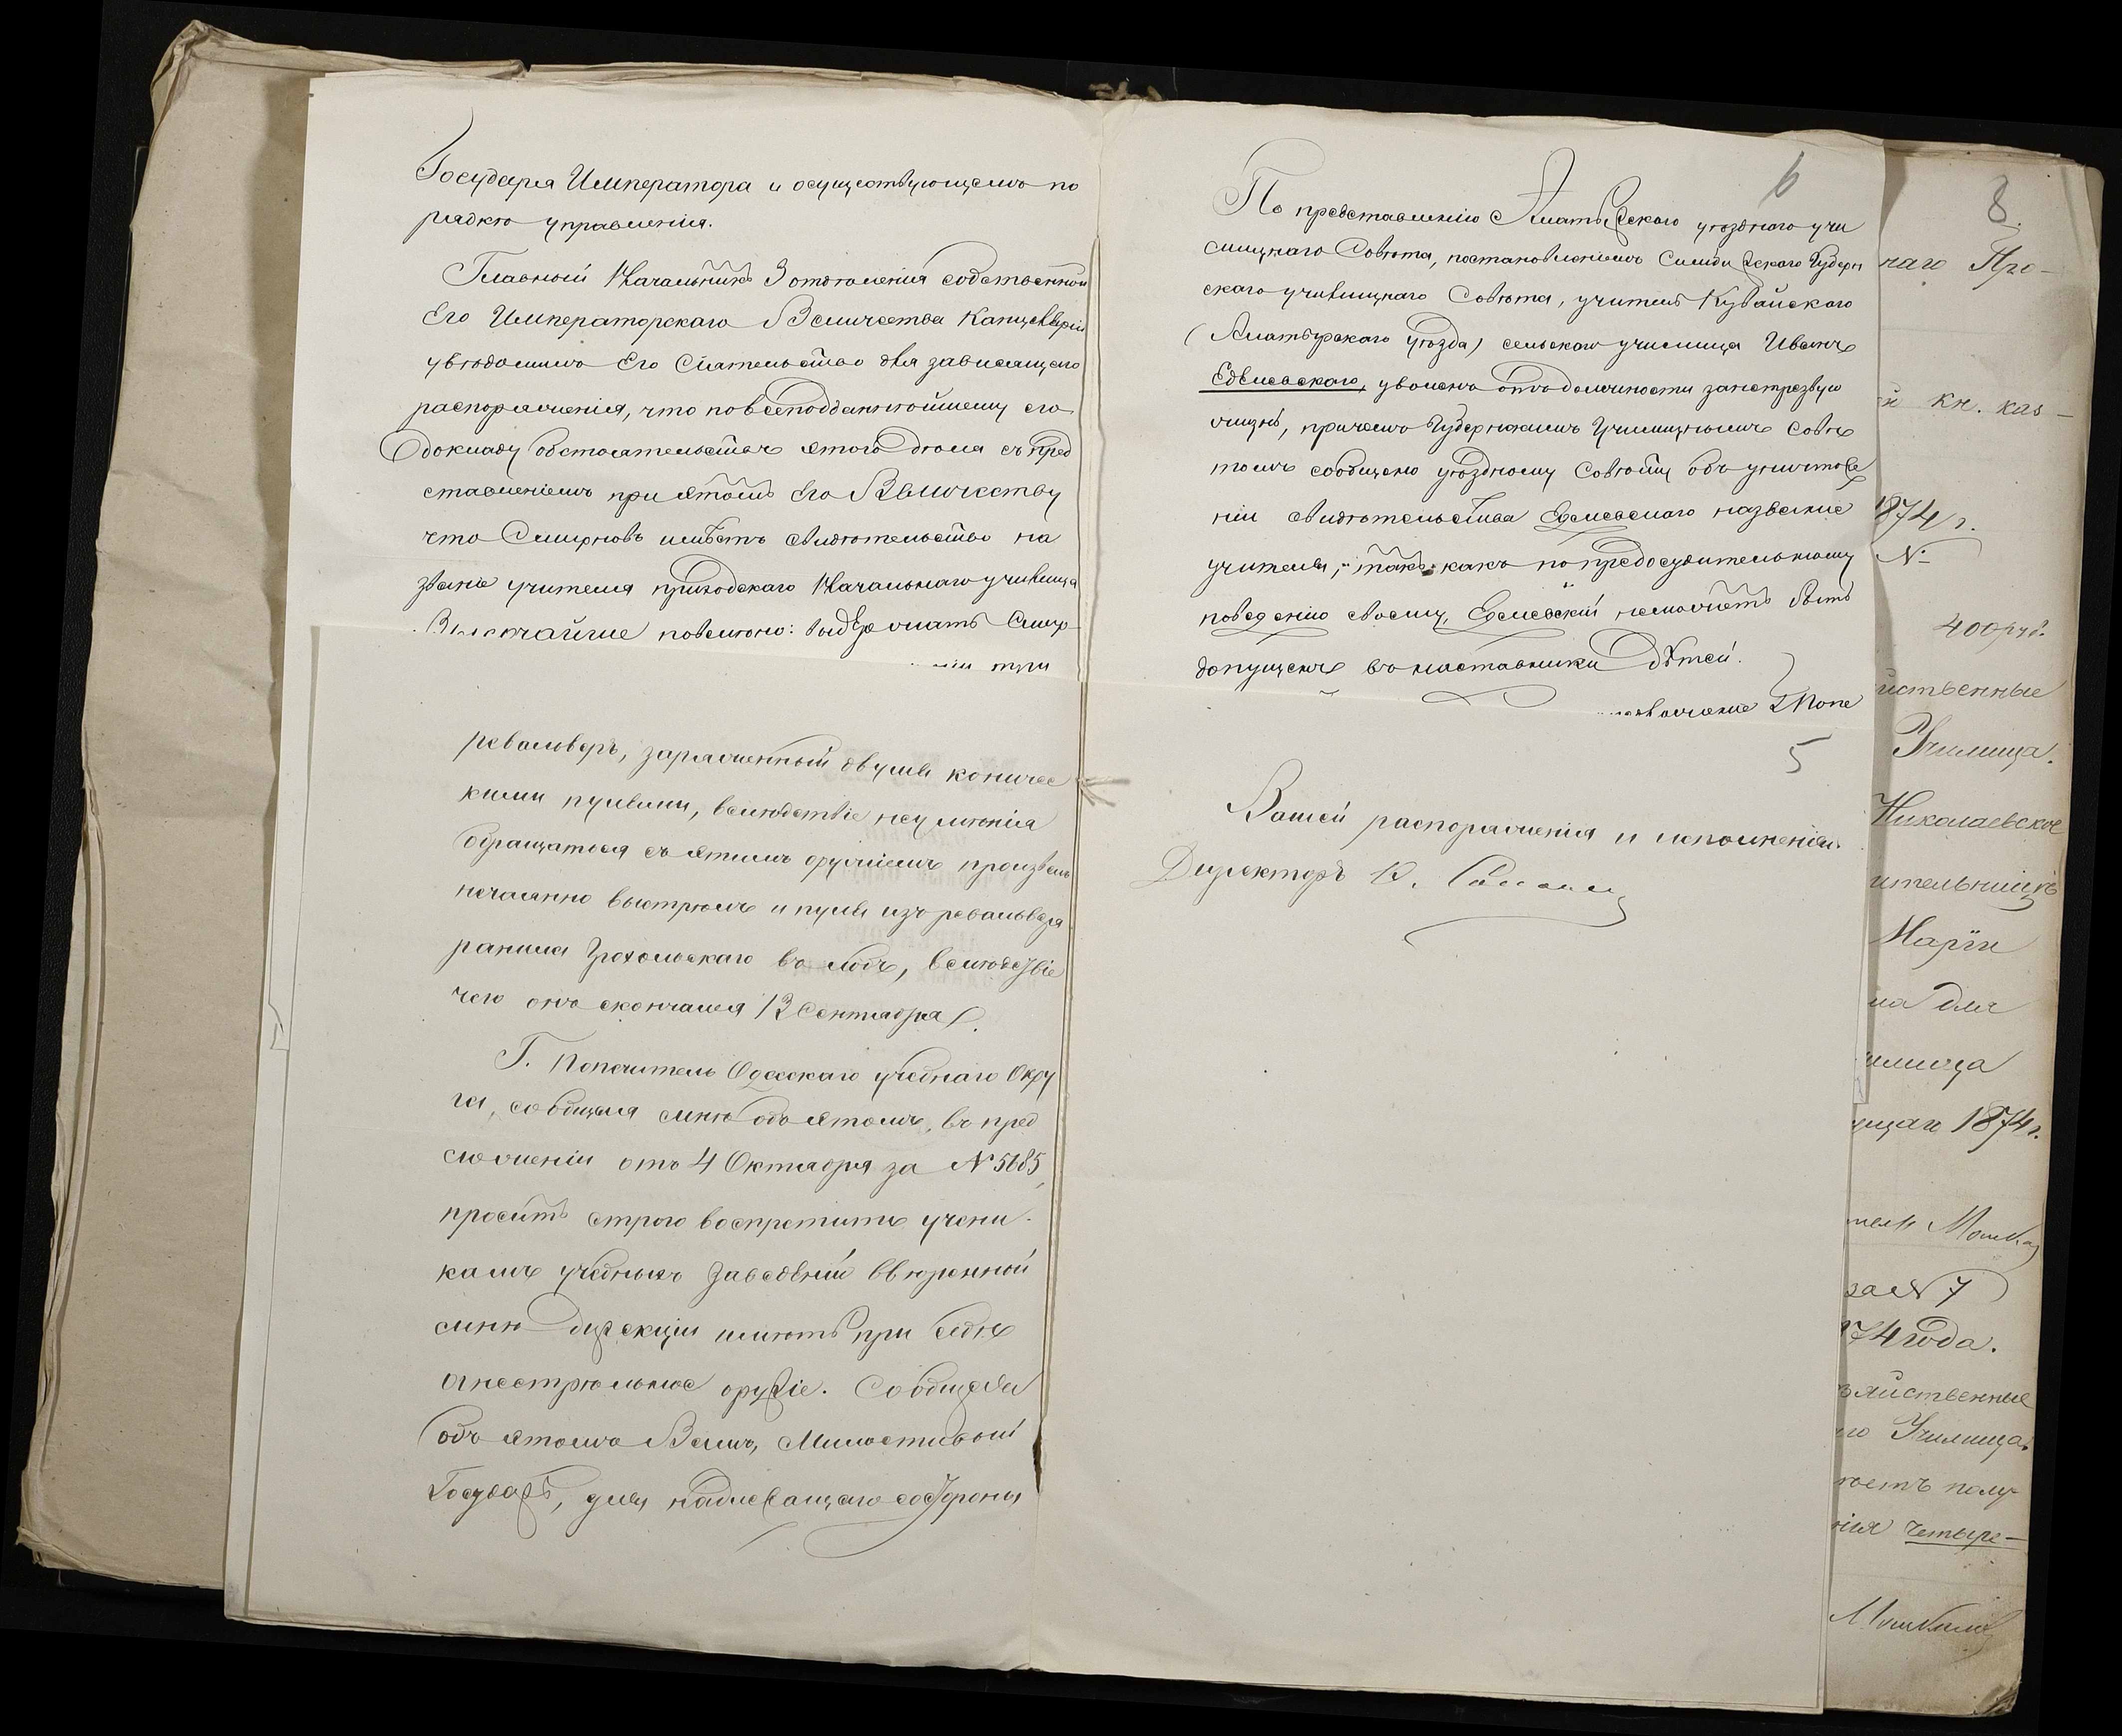 Государя Императора и осуществующемъ по
рядкѣ управленія.
Главный Начальникъ 3 отдѣленія собственной
Его Императорскаго Величества Канцеляріи
увѣдомилъ Его Сіятельство для зависящаго
распоряженія, что по всеподданнѣйшему его
докладу обстоятельствъ этого дѣла съ пред
ставленіемъ при этомъ Его Величеству
что Смирновъ имѣетъ свидѣтельство на
званіе учителя приходскаго Начальнаго училища
Высочайше повелѣно: выдержать Смир-
при
револьверъ, заряженный двумя коничес
кими пулями, вслѣдствіе неумѣнія
обращаться съ этимъ оружіемъ произвелъ
нечаянно выстрѣлъ и пуля изъ револьвера
ранила Грохольскаго въ лобъ, вслѣдствіе
чего онъ скончался 13 Сентября.
Г. Попечитель Одесскаго учебнаго Окру
га, сообщая мнѣ объ этомъ, въ пред
ложеніи отъ 4 Октября за № 5685,
проситъ строго воспретить учени-
камъ учебныхъ заведеній ввѣренной
мнѣ дирекціи имѣть при себѣ
огнестрѣльное оружіе. Сообщая
объ этомъ Вамъ, Милостивый
Государь, для надлежащаго со стороны
6
По представленію Алатырскаго уѣзднаго учи
лищнаго Совѣта, постановленіемъ Симбирскаго Губерн
скаго училищнаго Совѣта, учитель Кувайскаго
(Алатырскаго уѣзда) сельскаго училища Иванъ
уволенъ отъ должности за нетрезвую
жизнь, причемъ Губернскимъ Училищнымъ Совѣ
томъ сообщено уѣздному Совѣту объ уничтоже
ніи свидѣтельства на званіе
учителя, такъ какъ по предосудительному
поведенію своему, не можетъ быть
допущенъ въ наставники дѣтей.
Попе
5
Вашей распоряженія и исполненія.
Директоръ
8.
наго Про-
кн. каз-
1874 г.
№
400 руб.
йственные
Училища.
Николаевское
ительницѣ
Маріи
на для
илища
ущаго 1874 г.
за № 7
874 года.
зяйственные
го Училища.
ность полу-
нія четыре-